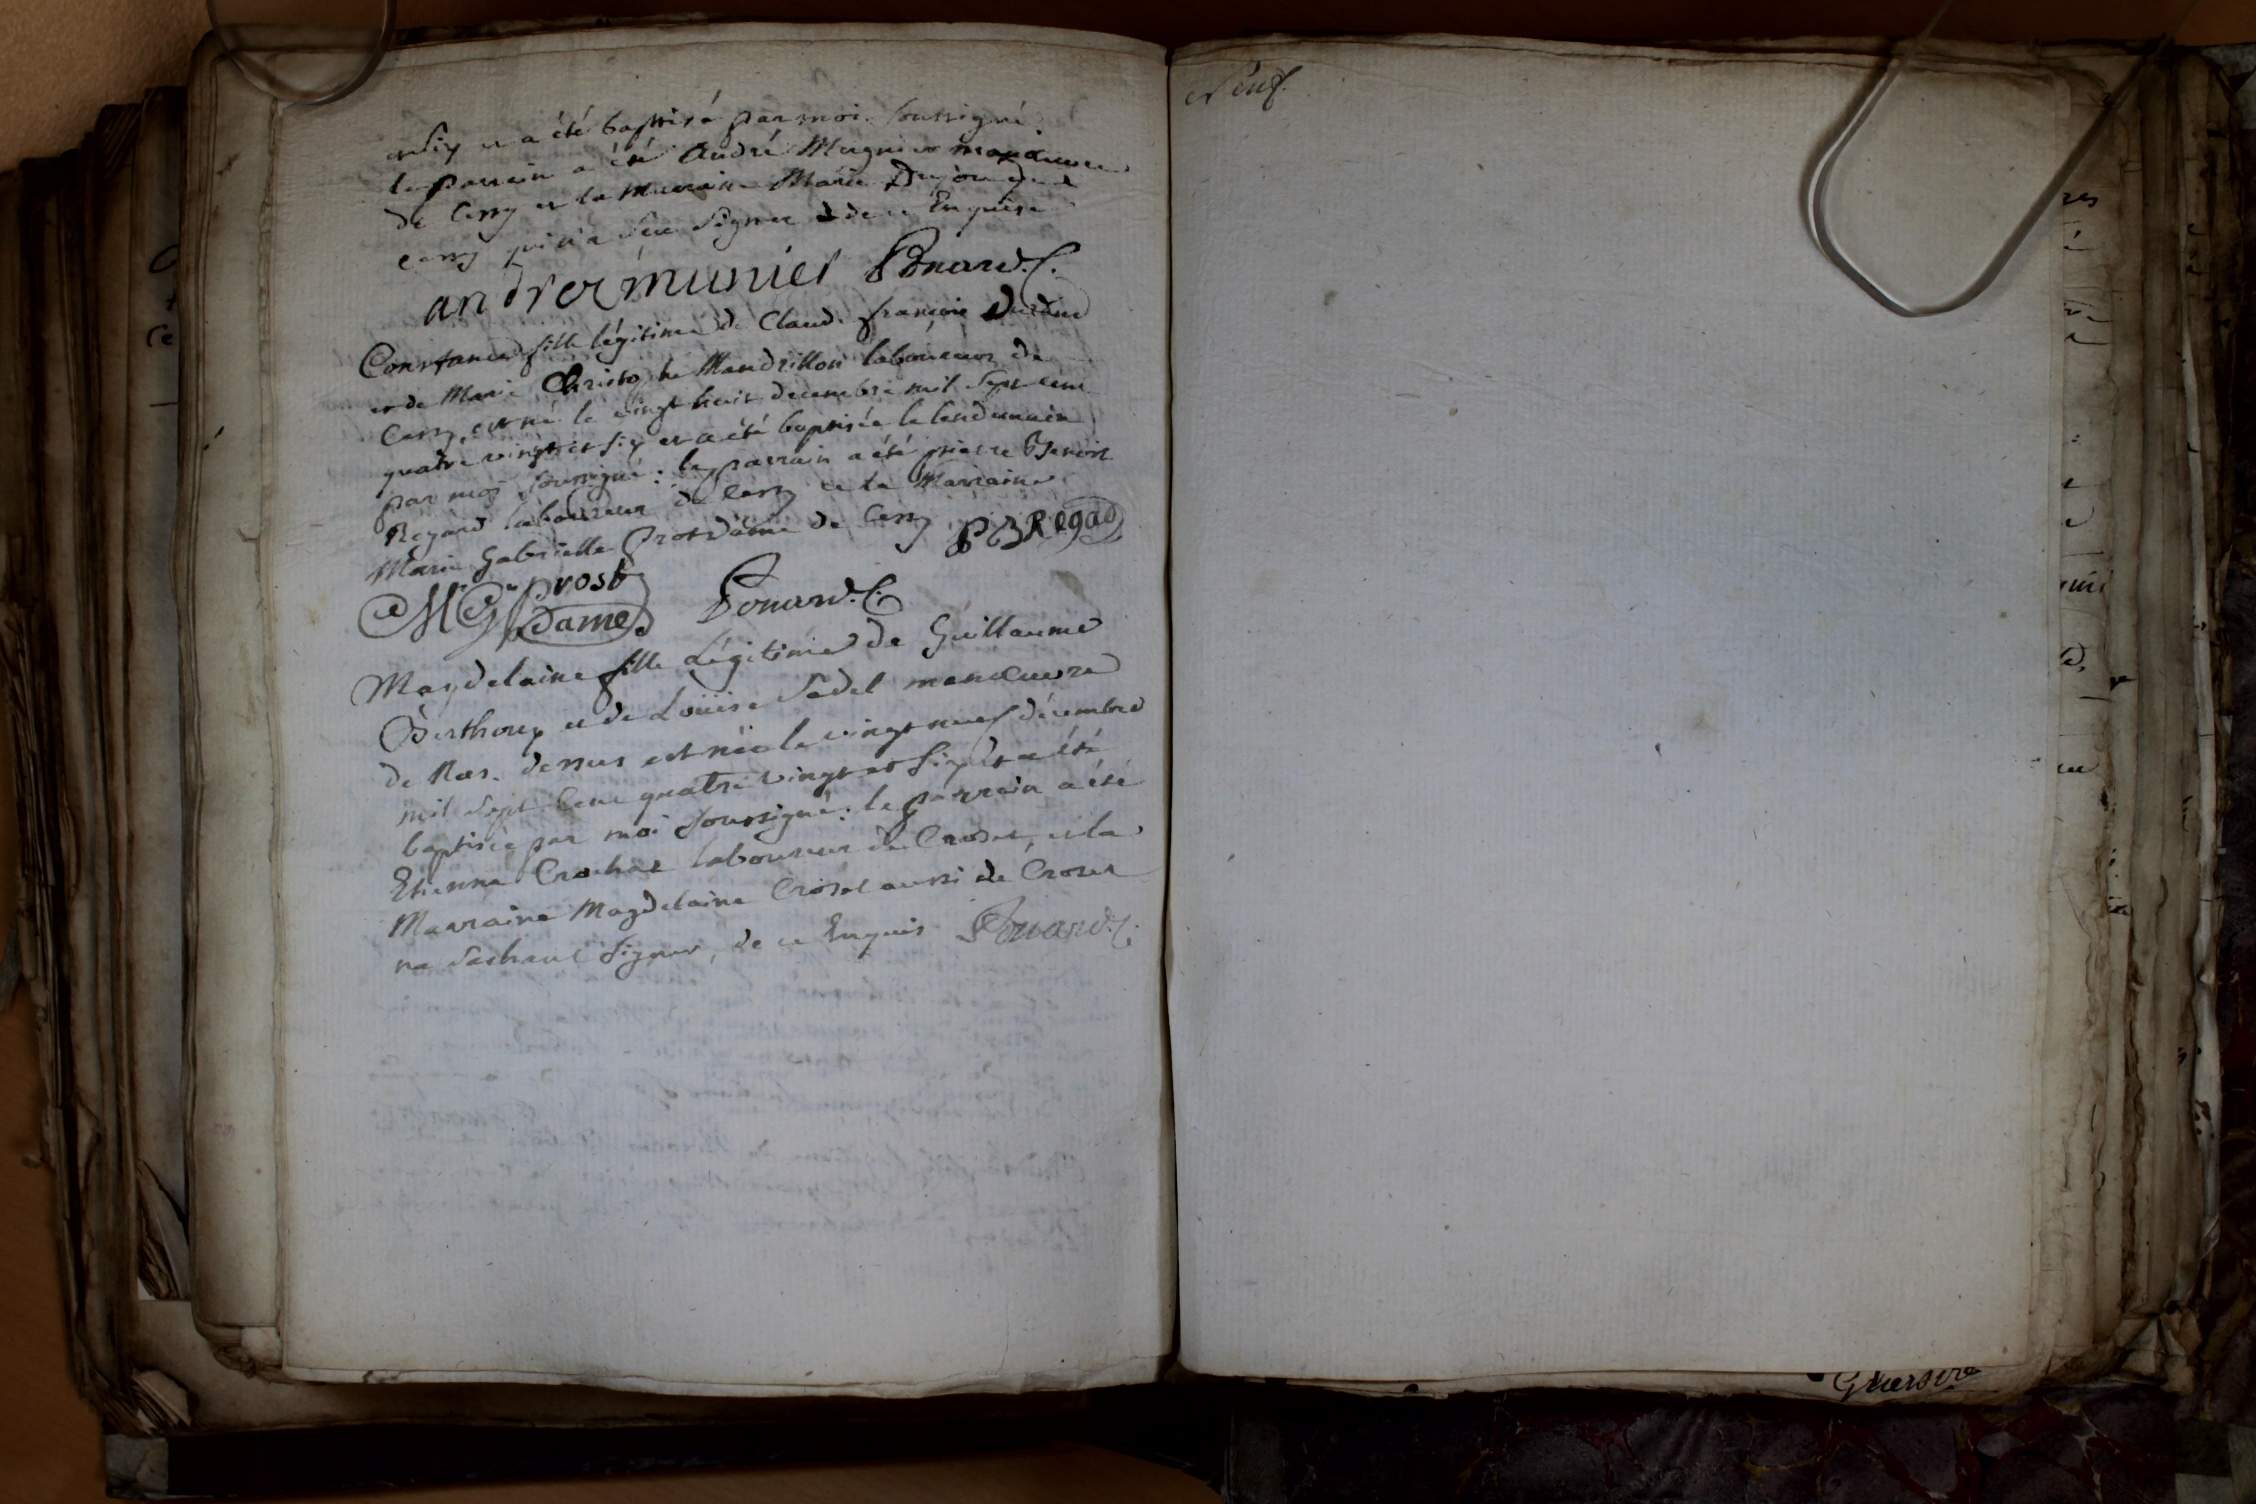 et six et a été baptisé par moi soussigné.
le parrain a été André Mugnier manœuvre
de Cessy et la marraine Marie de
Cessy qui n'a sçu signer de ce Enquise
andrer munier Ponard. C.
Constance fille légitime de Claude françois Durand
et de Marie Christophe Mandrillon laboureur de
Cessy, est né le vingt huit decembre mil sept cent
quatre vingt et six et a été baptisée le lendemain
par moi soussigné : le parrain a été pierre Benoit
Regard laboureur de Cessy et la Marraine
Marie Gabrielle Prost Dame de Cessy PB Regad
M G prost
Dame Ponard. C.
Magdelaine fille Légitime de Guillaume
Berthoux et de Louise Sadel manœuvre
de Nas. dessus est née le vingt neuf décembre
mil sept Cent quatre vingt et six et a été
baptisée par moi soussigné : le parrain a été
Etienne Crochat laboureur de Crozet, et la
Marraine Magdelaine Crozet aussi de Crozet
ne sachant signer, de ce Enquis Ponard. C.
Neuf.